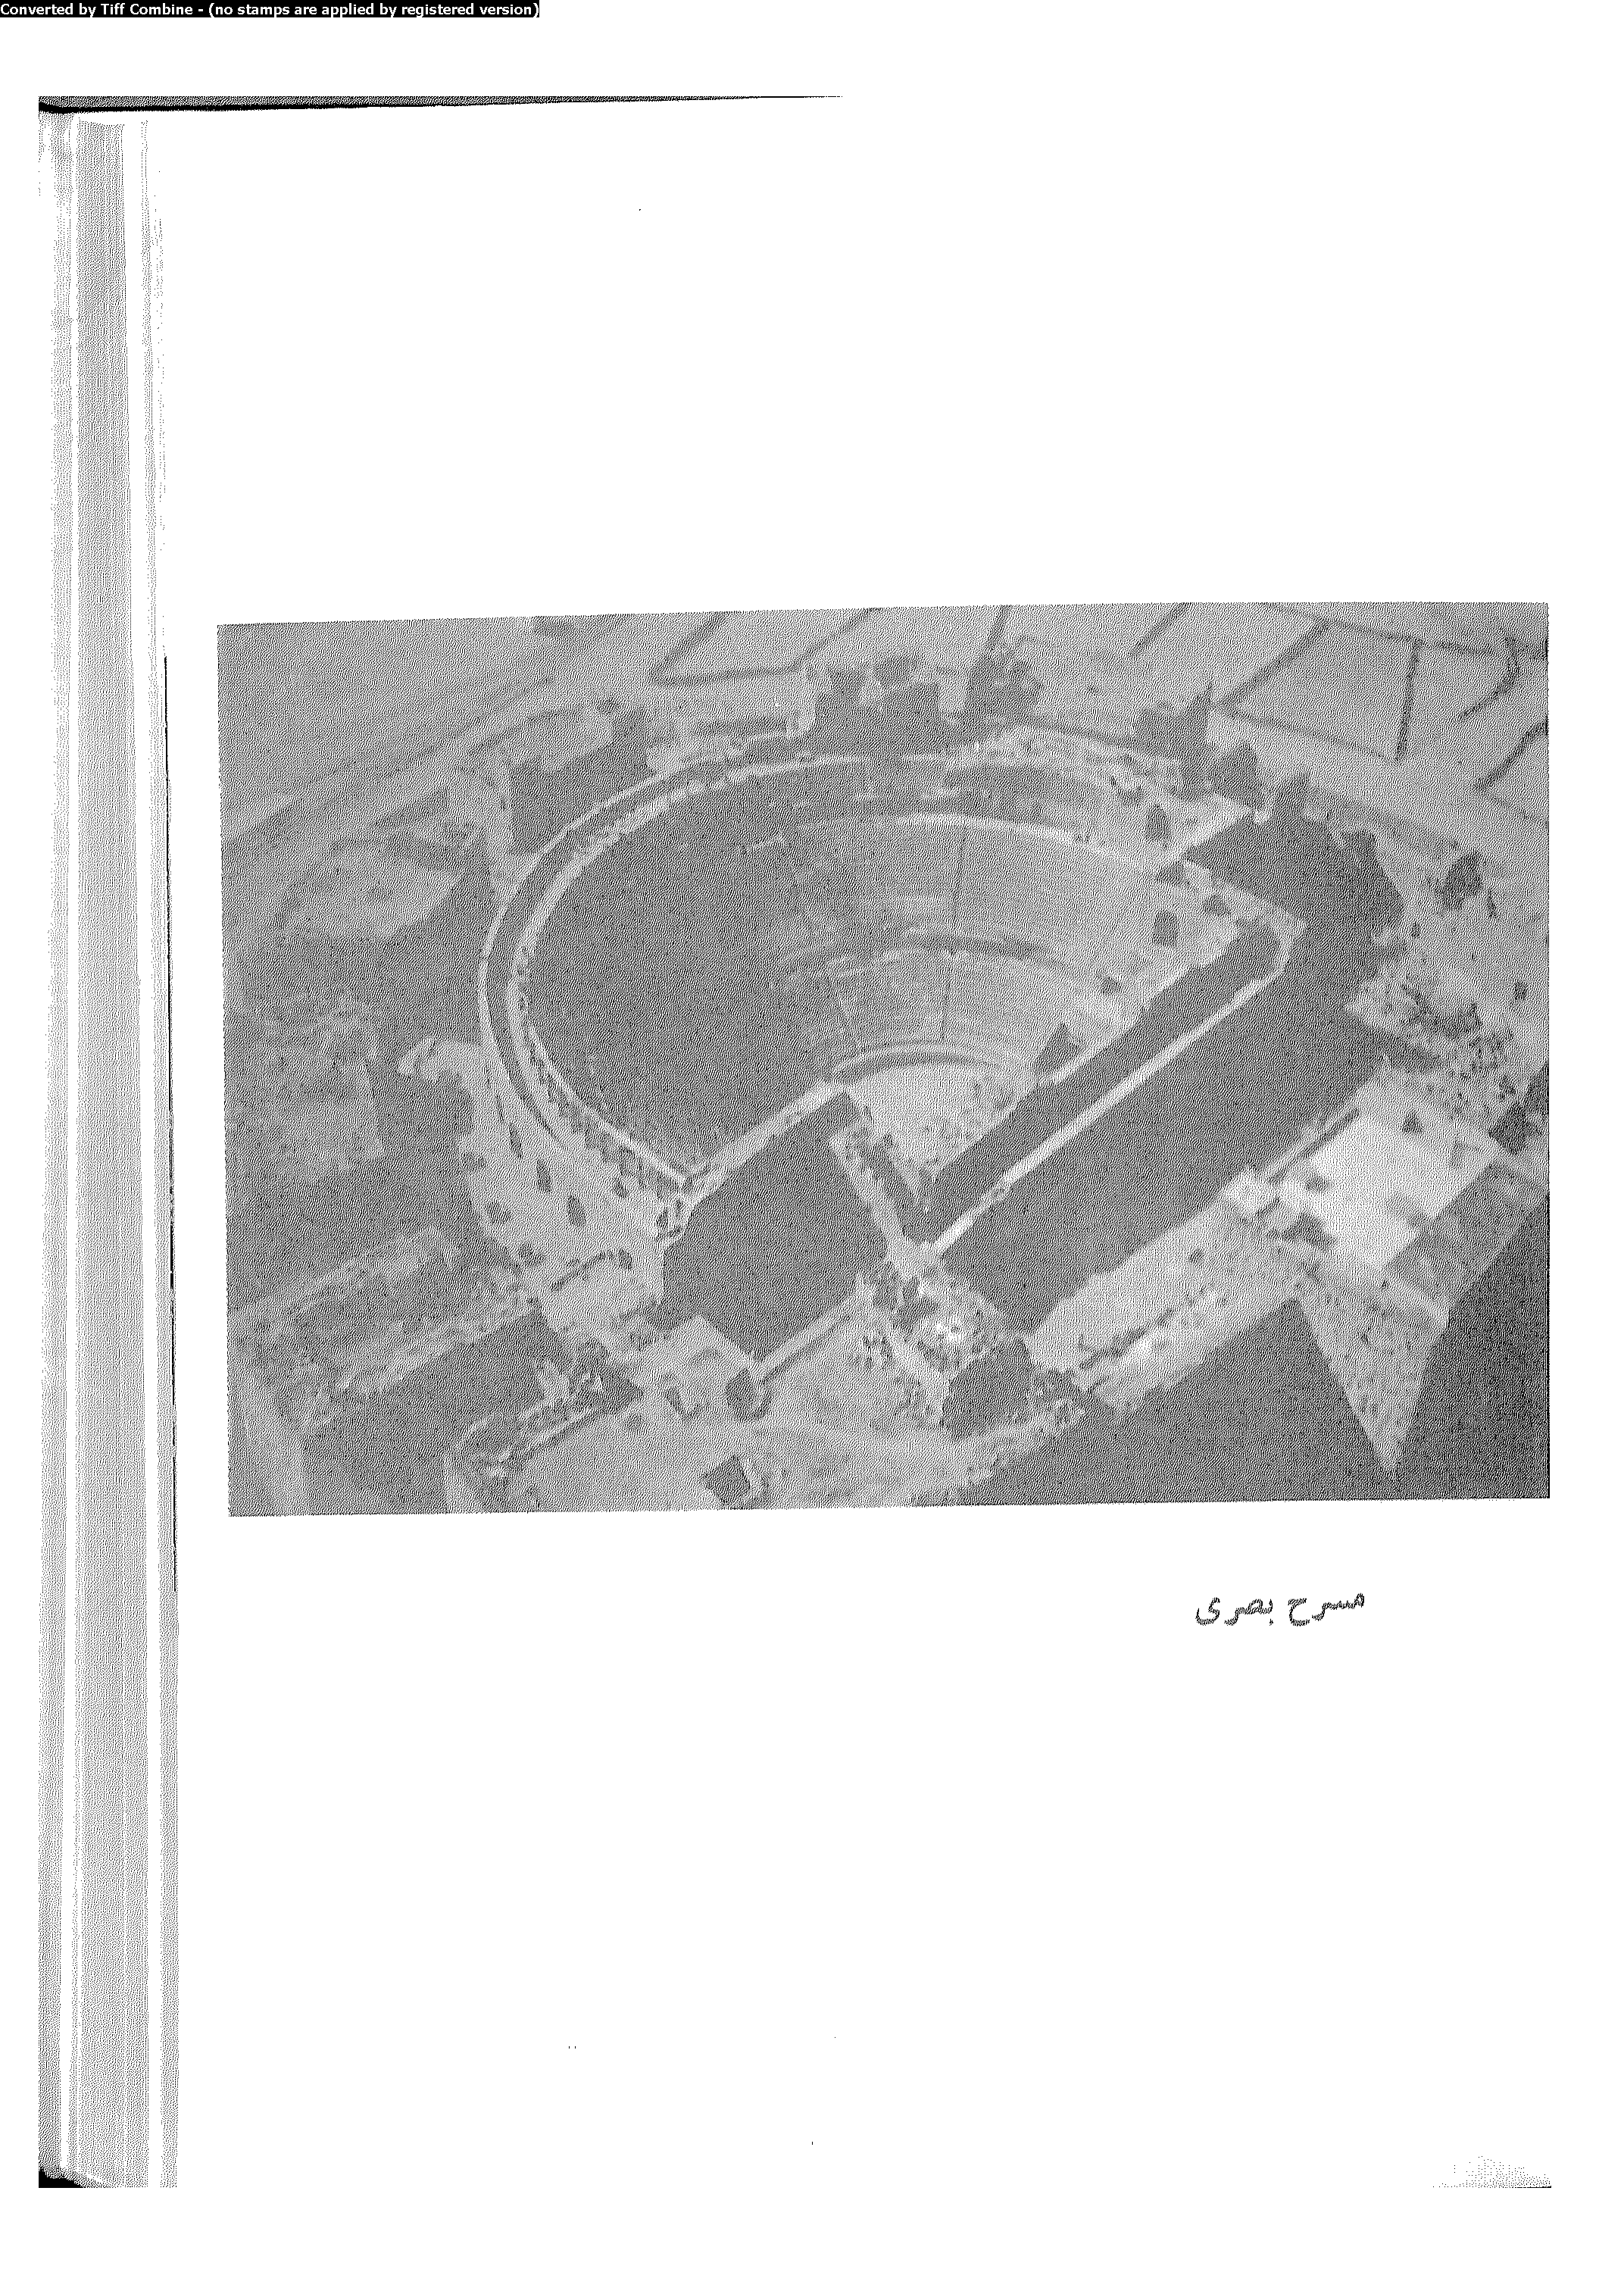 Converted by Tiff Combine - (no stamps are applied by registered version)
مسرح بصرى